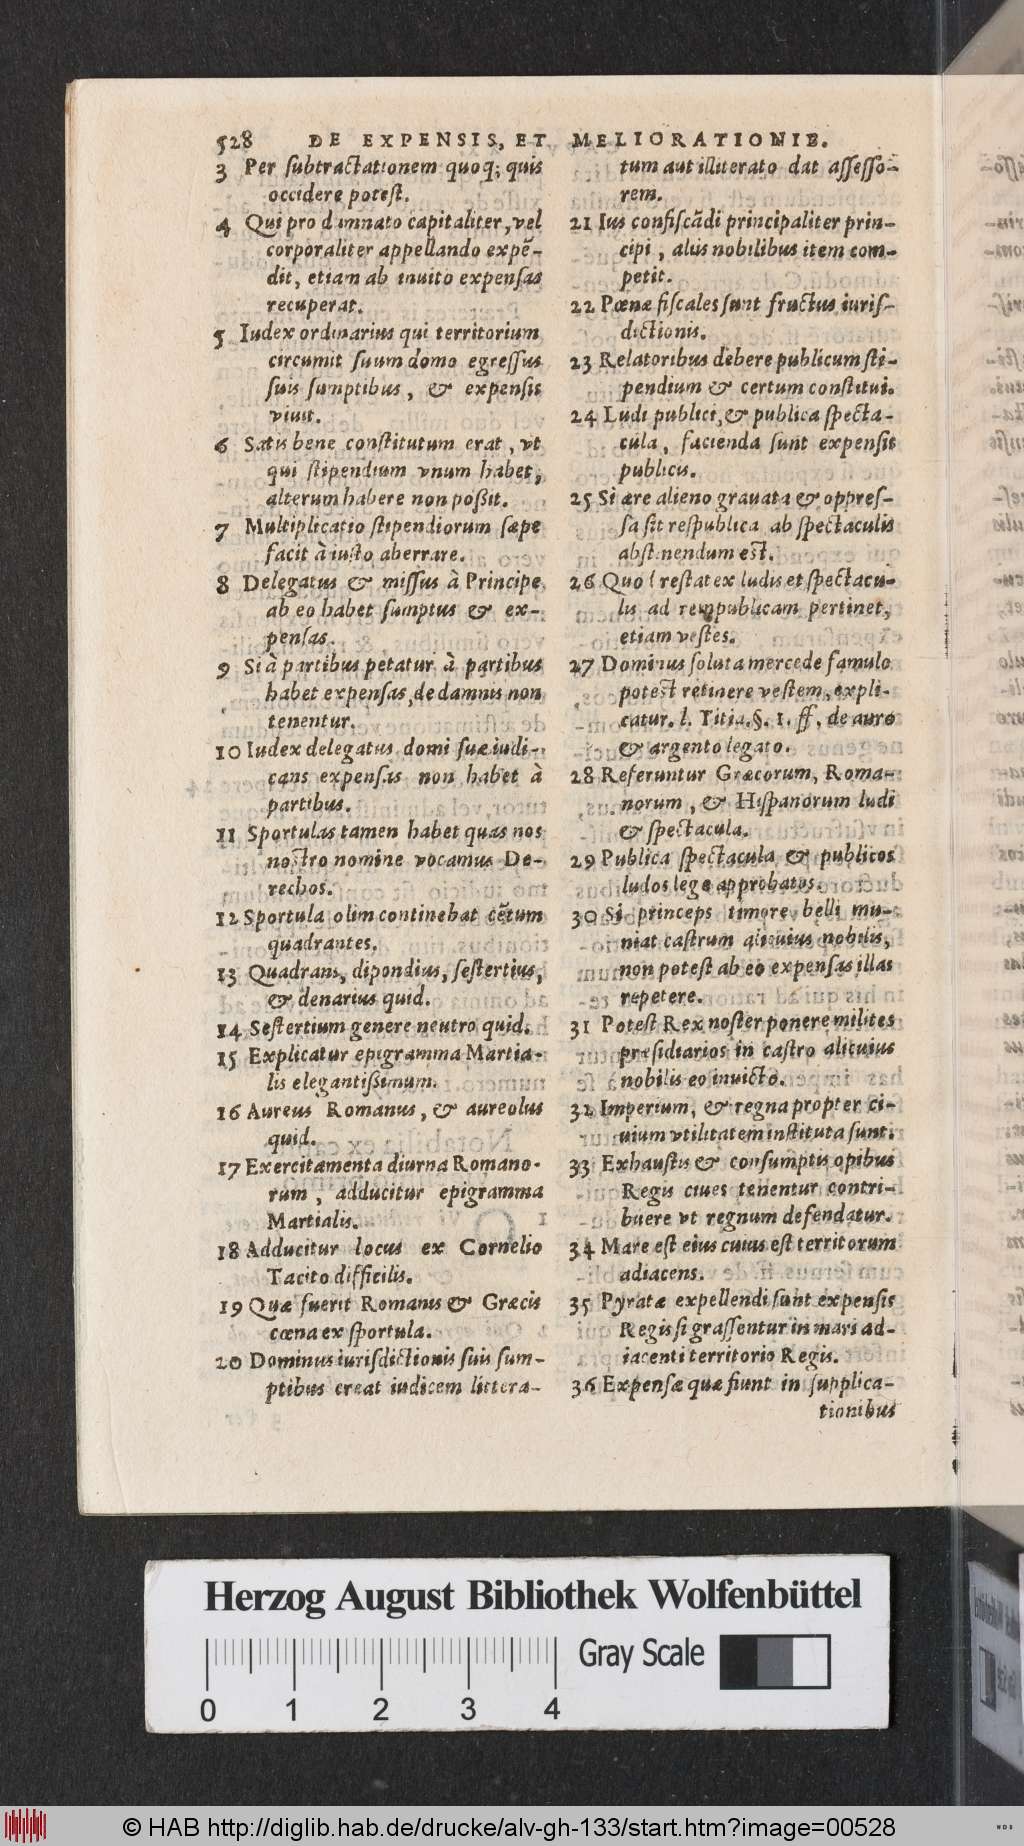 528 DE EXPENSIS, ET MELIORATIONIB.
3 Per ſubtractationem quoq; quis
occidere poteſt.
4 Qui pro damnato capitaliter, vel
corporaliter appellando expẽ-
dit, etiam ab inuito expenſas
recuperat.
5 Iudex ordinarius qui territorium
circumit ſuum domo egreſſus
ſuis ſumptibus, & expenſis
viuit.
6 Satis bene conſtitutum erat, vt
qui ſtipendium vnum habet,
alterum habere non poßit.
7 Multiplicatio ſtipendiorum ſæpe
facit à iuſto aberrare.
8 Delegatus & miſſus à Principe
ab eo habet ſumptus & ex-
penſas.
9 Si à partibus petatur, à partibus
habet expenſas, de damnis non
tenentur.
10 Iudex delegatus domi ſuæ iudi-
cans expenſas non habet à
partibus.
11 Sportulas tamen habet quas nos
noſtro nomine vocamus De-
rechos.
12 Sportula olim continebat cẽtum
quadrantes.
13 Quadrans, dipondius, ſeſtertius,
& denarius quid.
14 Seſtertium genere neutro quid.
15 Explicatur epigramma Martia-
lis elegantißimum.
16 Aureus Romanus, & aureolus
quid.
17 Exercitamenta diurna Romano-
rum, adducitur epigramma
Martialis.
18 Adducitur locus ex Cornelio
Tacito difficilis.
19 Quæ fuerit Romanis & Græcis
cœna ex ſportula.
20 Dominus iuriſdictionis ſuis ſum-
ptibus creat iudicem littera-
tum aut illiterato dat aſſeſſo-
rem.
21 Ius confiſcãdi principaliter prin-
cipi, aliis nobilibus item com-
petit.
22 Pœnæ fiſcales ſunt fructus iuriſ-
dictionis.
23 Relatoribus debere publicum ſti-
pendium & certum conſtitui.
24 Ludi publici, & publica ſpecta-
cula, facienda ſunt expenſis
publicis.
25 Si ære alieno grauata & oppreſ-
ſa ſit reſpublica, ab ſpectaculis
abſtinendum eſt.
26 Quod reſtat ex ludis et ſpectacu-
lis ad rempublicam pertinet,
etiam veſtes.
27 Dominus ſoluta mercede famulo
poteſt retinere veſtem, expli-
catur. l. Titia. §. 1. ff. de auro
& argento legato.
28 Referuntur Græcorum, Roma-
norum, & Hiſpanorum ludi
& ſpectacula.
29 Publica ſpectacula & publicos
ludos lege approbatos.
30 Si princeps timore belli mu-
niat caſtrum alicuius nobilis,
non poteſt ab eo expenſas illas
repetere.
31 Poteſt Rex noſter ponere milites
præſidiarios in caſtro alicuius
nobilis eo inuicto.
32 Imperium, & regna propter ci-
uium vtilitatem inſtituta ſunt.
33 Exhauſtis & conſumptis opibus
Regis ciues tenentur contri-
buere vt regnum defendatur.
34 Mare eſt eius cuius eſt territorum
adiacens.
35 Pyratæ expellendi ſunt expenſis
Regis ſi graſſentur in mari ad-
iacenti territorio Regis.
36 Expenſæ quæ fiunt in ſupplica-
tionibus
Herzog August Bibliothek Wolfenbüttel
Gray Scale
0 1 2 3 4
© HAB http://diglib.hab.de/drucke/alv-gh-133/start.htm?image=00528